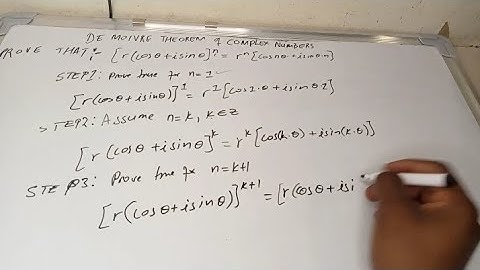 DE MOIVRE THEOREM of COMPLEX NUMBERS
PROVE THAT:- [r(cosθ+isinθ]ⁿ = rⁿ[cosnθ+isinθ·n]
STEP1: Prove true for n=1
[r(cosθ+isinθ)]¹ = r¹[cos1·θ+isinθ·1]
STEP2: Assume n=k, k∈z
[r(cosθ+isinθ]ᵏ = rᵏ[cos(k·θ)+isin(k·θ)]
STEP3: Prove true for n=k+1
[r(cosθ+isinθ)]ᵏ⁺¹ = [r(cosθ+isi